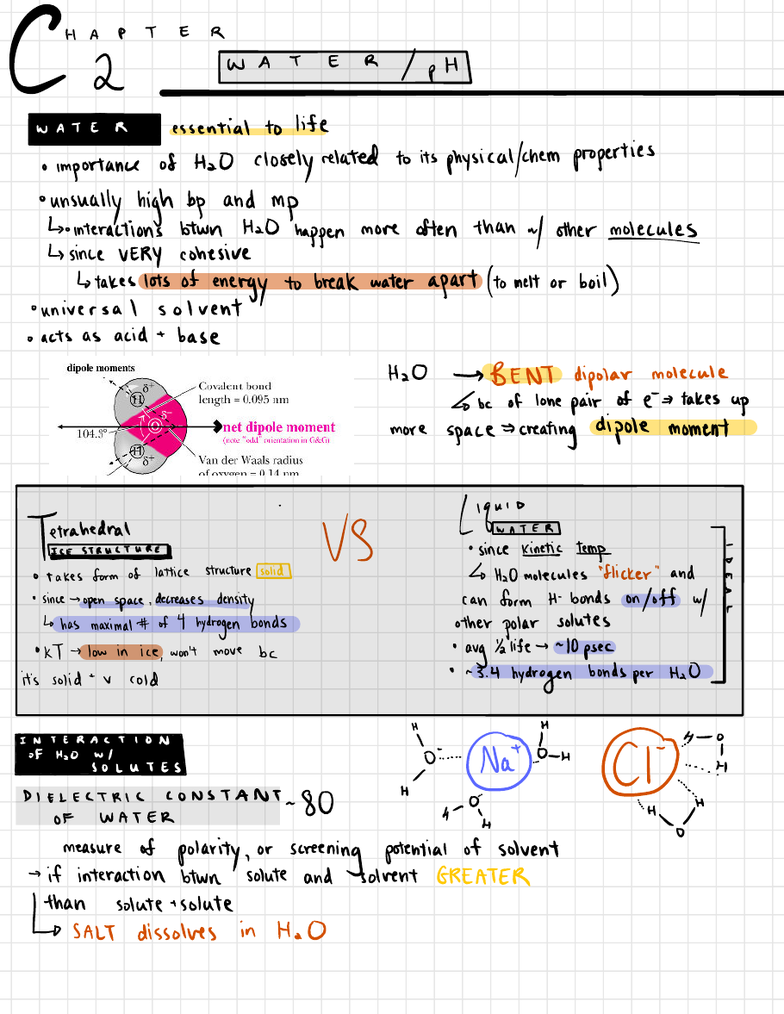 CHAPTER
2
WATER/pH
WATER essential to life
• importance of H₂O closely related to its physical/chem properties
• unsually high bp and mp
↳• interactions btwn H₂O happen more often than w/ other molecules
↳ since VERY cohesive
↳ takes lots of energy to break water apart (to melt or boil)
• universal solvent
• acts as acid + base
dipole moments
δ+
H
Covalent bond
length = 0.095 nm
δ-
104.3°
net dipole moment
(note "odd" orientation in G&G)
H
δ+
Van der Waals radius
of oxygen = 0.14 nm
H₂O → BENT dipolar molecule
↳ bc of lone pair of e⁻ → takes up
more space ⇒ creating dipole moment
Tetrahedral
ICE STRUCTURE
• takes form of lattice structure solid
• since → open space, decreases density
↳ has maximal # of 4 hydrogen bonds
• kT → low in ice, won't move bc
it's solid + v cold
VS
LIQUID
WATER
• since kinetic temp
↳ H₂O molecules "flicker" and
can form H-bonds on/off w/
other polar solutes
• avg ½ life → ~10 psec
• ~3.4 hydrogen bonds per H₂O
IDEAL
INTERACTION
OF H₂O W/
SOLUTES
H
O⁻
H
Na⁺
H
O-H
H-O
H
Cl⁻
H-O
H
H
H
O
DIELECTRIC CONSTANT ~80
OF WATER
measure of polarity, or screening potential of solvent
→ if interaction btwn solute and solvent GREATER
than solute + solute
↳ SALT dissolves in H₂O